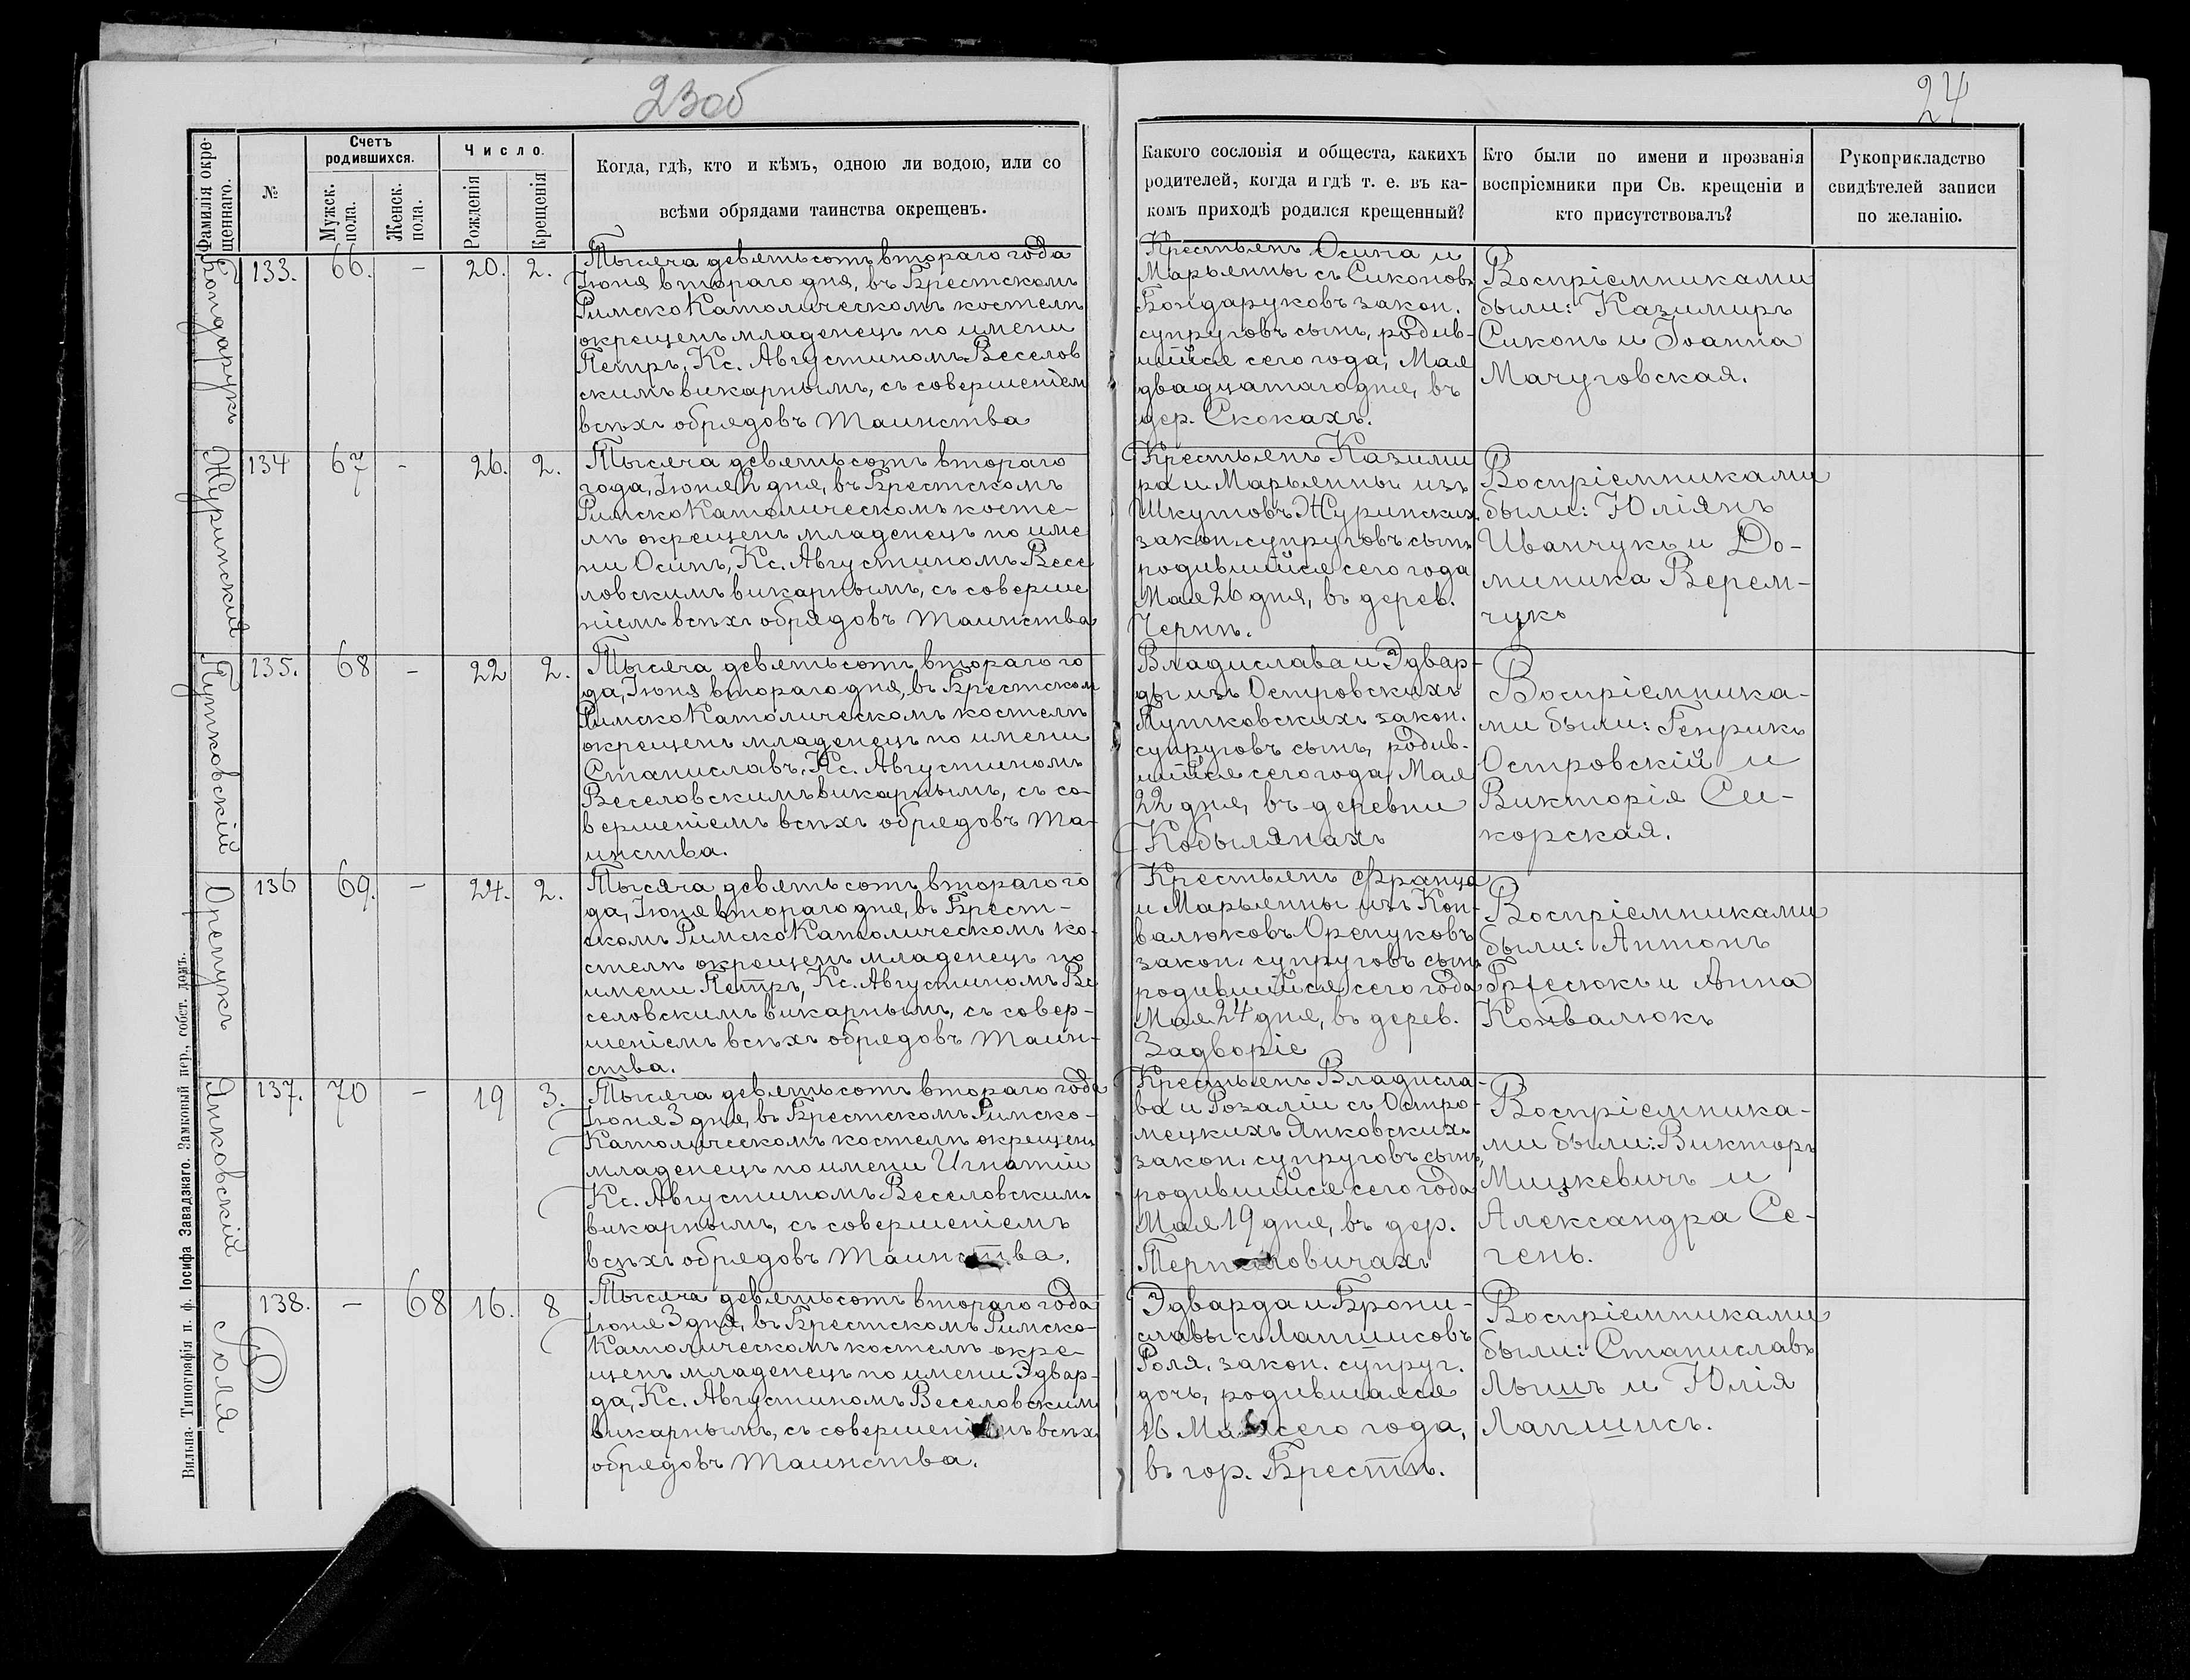 23об
24
Фамилія окре-
щеннаго.
№
Счетъ
родившихся.
Мужск.
пола.
Женск.
пола.
Число.
Рожденія
Крещенія
Когда, гдѣ, кто и кѣмъ, одною ли водою, или со
всѣми обрядами таинства окрещенъ.
Какого сословія и общеста, какихъ
родителей, когда и гдѣ т. е. въ ка-
комъ приходѣ родился крещенный?
Кто были по имени и прозванія
воспріемники при Св. крещеніи и
кто присутствовалъ?
Рукоприкладство
свидѣтелей записи
по желанію.
Бондарукъ
133. 66. – 20. 2.
Тысяча девятьсотъ втораго года
Іюня втораго дня, въ Брестскомъ
РимскоКатолическомъ костелѣ
окрещенъ младенецъ по имени
Петръ, Кс. Августиномъ Веселов
скимъ викарнымъ, съ совершеніем
всѣхъ обрядовъ Таинства
Крестьянъ Осипа и
Марьянны съ Сиконовъ
Бондаруковъ закон.
супруговъ сынъ, родив-
шійся сего года, Мая
двадцатаго дня, въ
дер. Скокахъ.
Воспріемниками
были: Казимиръ
Сиконъ и Іоанна
Мачуговская.
Журинскій
134 67 - 26. 2.
Тысяча девятьсотъ втораго
года, Іюня 2 дня, въ Брестскомъ
РимскоКатолическомъ косте-
лѣ окрещенъ младенецъ по име
ни Осипъ, Кс. Августиномъ Весе
ловскимъ викарнымъ, съ соверше
ніемъ всѣхъ обрядовъ Таинства
Крестьянъ Казими
ра и Марьянны изъ
Шкутовъ Журинских
закон. супруговъ сынъ
родившійся сего года
Мая 26 дня, въ дерев.
Чернѣ.
Воспріемниками
были: Юліянъ
Иванчукъ и До-
миника Верем-
чукъ
Путковскій
135. 68 - 22 2.
Тысяча девятьсотъ втораго го
да, Іюня втораго дня, въ Брестском
РимскоКатолическомъ костелѣ
окрещенъ младенецъ по имени
Станиславъ, Кс. Августиномъ
Веселовскимъ викарнымъ, съ со-
вершеніемъ всѣхъ обрядовъ Та-
инства.
Владислава и Эдвар-
ды изъ Островскихъ
Путковскихъ закон.
супруговъ сынъ, родив-
шійся сего года, Мая
22 дня, въ деревни
Кобылянахъ
Воспріемника-
ми были: Генрикъ
Островскій и
Викторія Си-
корская.
Орепукъ
136 69. – 24. 2.
Тысяча девятьсотъ втораго го
да, Іюня втораго дня, въ Брест-
скомъ РимскоКатолическомъ ко-
стелѣ окрещенъ младенецъ по
имени Петръ, Кс. Августиномъ Ве
селовскимъ викарнымъ, съ совер-
шеніемъ всѣхъ обрядовъ Таин-
ства.
Крестьянъ Франца
и Марьянны изъ Кон-
валюковъ Орепуковъ
закон. супруговъ сынъ
родившійся сего года
Мая 24 дня, въ дерев.
Задворіе
Воспріемниками
были: Антонъ
и Анна
Конвалюкъ
Янковскій
137. 70 – 19 3.
Тысяча девятьсотъ втораго года
Іюня 3 дня, въ Брестскомъ Римско-
Католическомъ костелѣ окрещенъ
младенецъ по имени Игнатій
Кс. Августиномъ Веселовскимъ
викарнымъ, съ совершеніемъ
всѣхъ обрядовъ Таинства.
Крестьянъ Владисла-
ва и Розаліи съ Остро-
мецкихъ Янковскихъ
закон. супруговъ сынъ,
родившійся сего года
Мая 19 дня, въ дер.
Воспріемника-
ми были: Викторъ
Мицкевичъ и
Александра Се-
гень.
Роля
138. – 68 16. 8
Тысяча девятьсотъ втораго года
Іюня 3 дня, въ Брестскомъ Римско-
Католическомъ костелѣ окре-
щенъ младенецъ по имени Эдвар-
да, Кс. Августиномъ Веселовским
викарнымъ, съ совершеніемъ всѣхъ
обрядовъ Таинства.
Эдварда и Брони-
славы съ Лапшисовъ
Роля, закон. супруг.
дочь, родившаяся
16 Мая сего года,
въ гор. Брестѣ.
Воспріемниками
были: Станиславъ
Лышъ и Юлія
Лапшисъ.
Вильна. Типографія п. ф. Іосифа Завадзкаго. Замковый пер., собст. домъ.